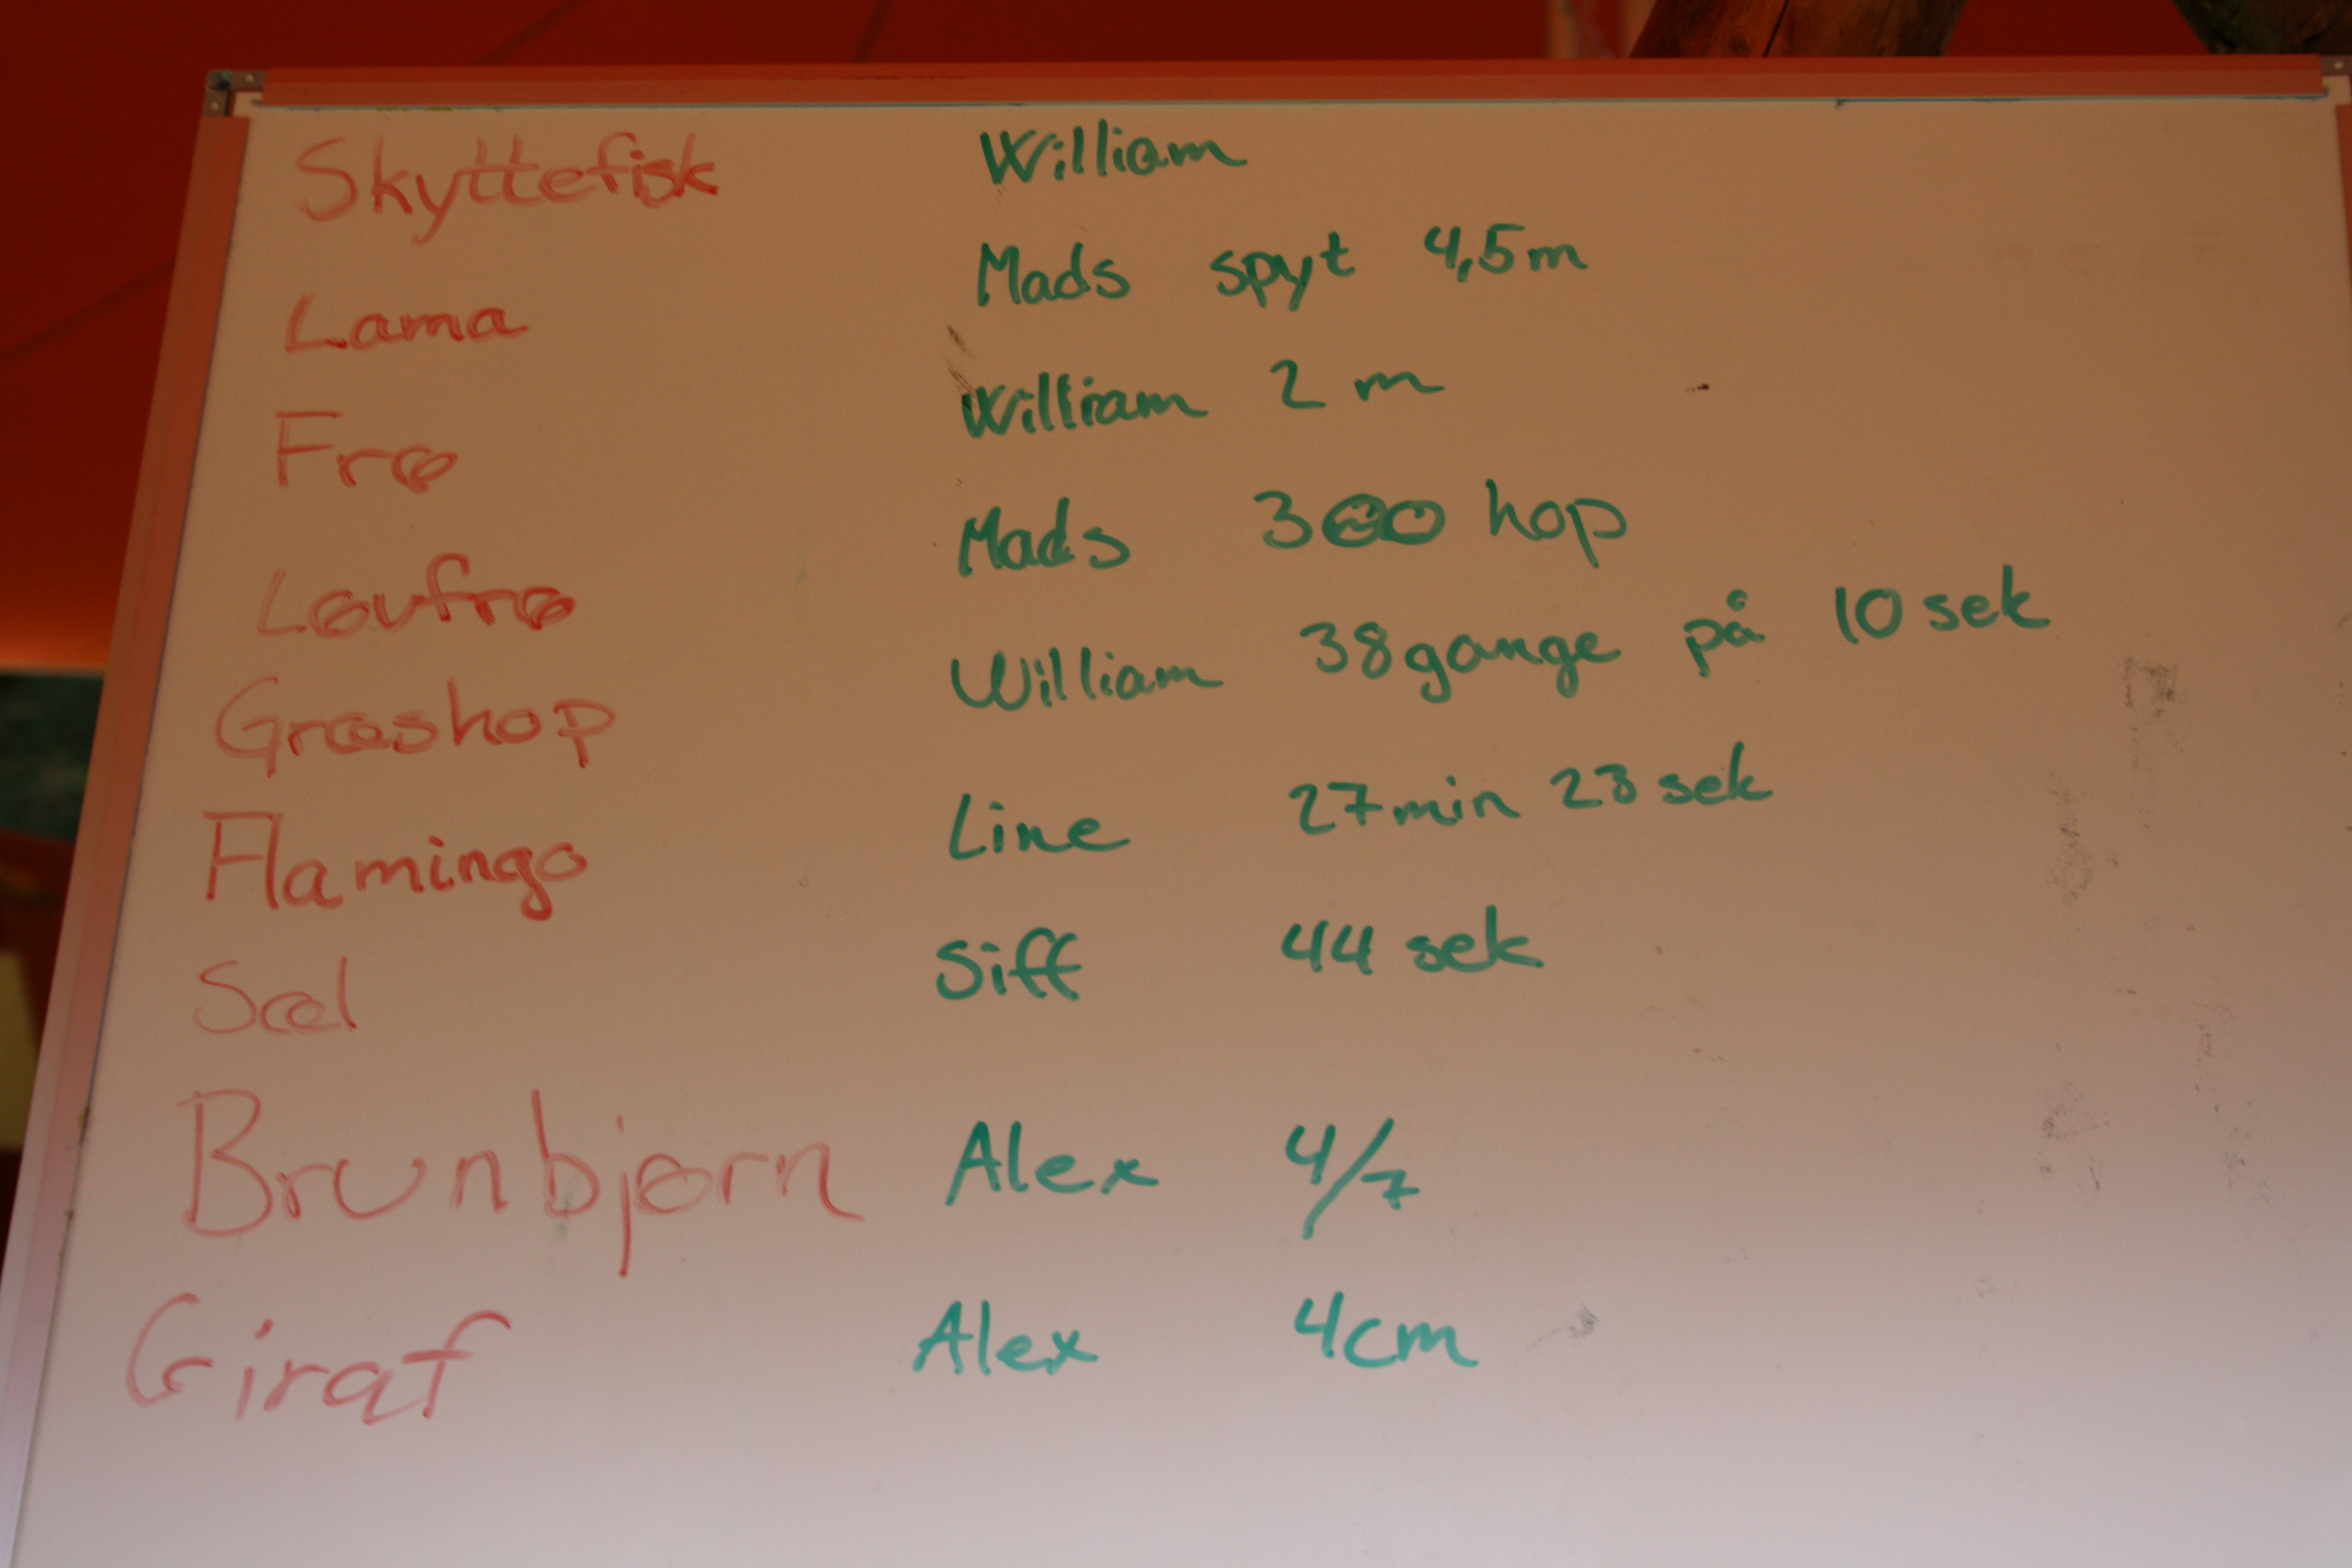 Skyttefisk William
Lama Mads spyt 4,5m
Frø William 2 m
Løvfrø Mads 300 hop
Græshop William 38 gange på 10 sek
Flamingo Line 27 min 23 sek
Sæl Siff 44 sek
Brunbjørn Alex 4/7
Giraf Alex 4cm